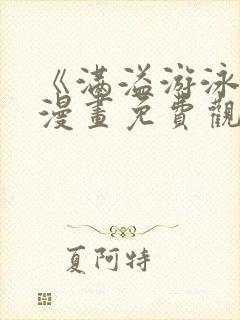 《满溢游泳
漫畫免費觀
夏阿特